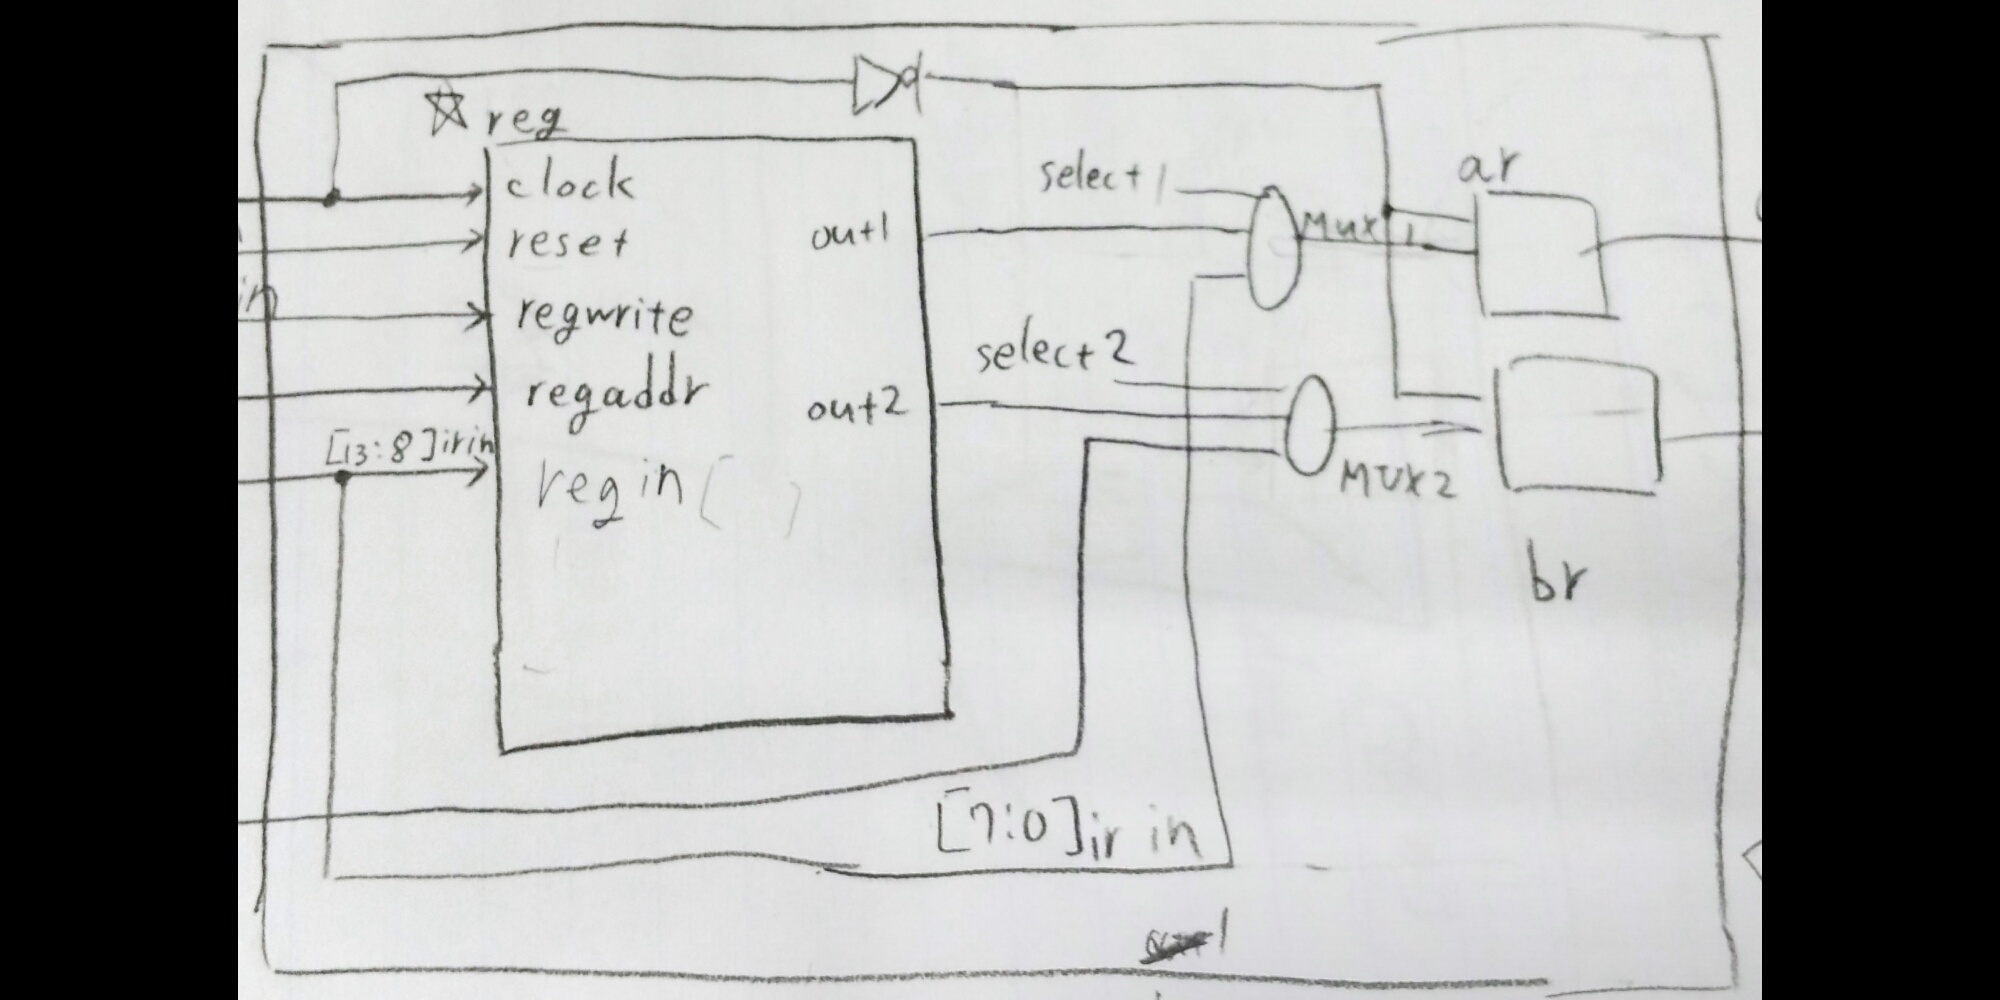 reg
clock
reset
in
regwrite
regaddr
[13:8]irin
regin( )
out1
out2
select1
Mux1
ar
select2
MUX2
br
[7:0]ir in
1